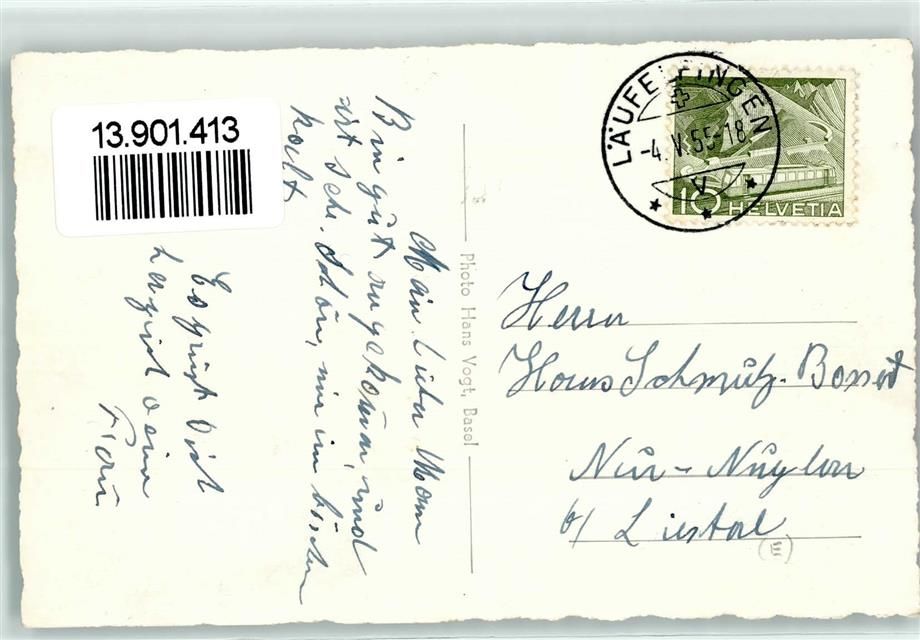 13.901.413
LÄUFELFINGEN
-4.V.55-18
A
10 HELVETIA
Mein lieber Mann
Bin gut angekomen, und
ist seh. schön, nur ein bischen
kalt
Es grüst dich
herzlich dein
Frau
Photo Hans Vogt, Basel
Herrn
Hans Schmutz-Bossert
Nur-Nuglon
b/ Liestal